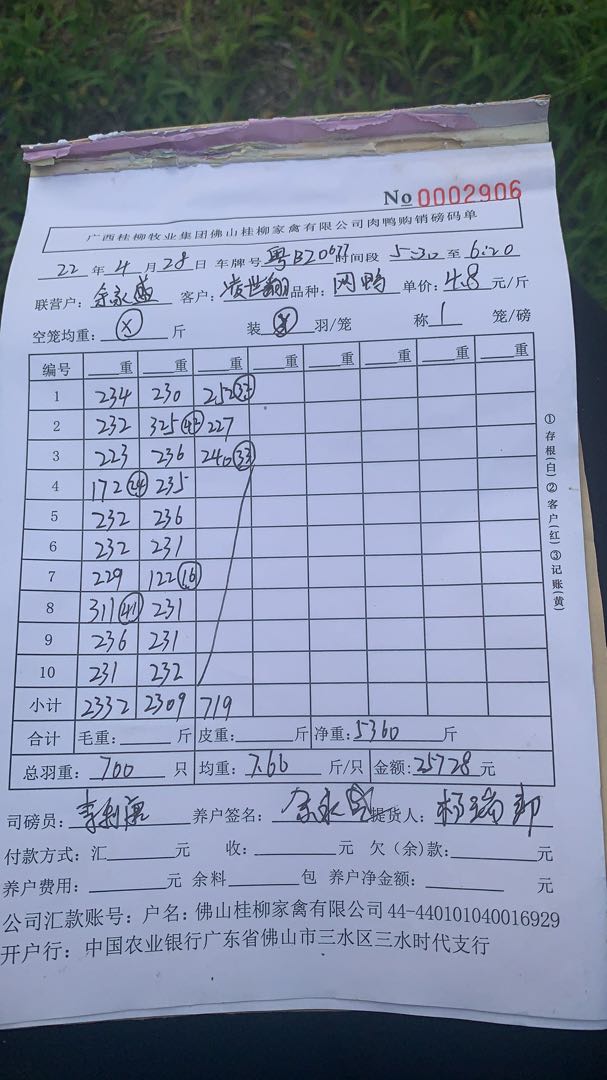 No 0002906
广西桂柳牧业集团佛山桂柳家禽有限公司肉鸭购销磅码单
22 年 4 月 28 日 车牌号 粤B20677 时间段 5:30 至 6:20
联营户: 余永 客户: 世翔 品种: 网鸭 单价: 4.8 元/斤
空笼均重: X 斤 装 羽/笼 称 1 笼/磅
编号 重 重 重 重 重 重 重 重
1 234 230 252 33
2 232 325 42 227
3 223 236 240 33
4 172 24 235
5 232 236
6 232 231
7 229 122 16
8 311 41 231
9 236 231
10 231 232
小计 2332 2309 719
合计 毛重: 斤 皮重: 斤 净重: 5360 斤
总羽重: 700 只 均重: 7.66 斤/只 金额: 25728 元
司磅员: 李 养户签名: 余永 提货人: 杨瑞
付款方式: 汇 元 收: 元 欠(余)款: 元
养户费用: 元 余料 包 养户净金额: 元
公司汇款账号: 户名: 佛山桂柳家禽有限公司 44-440101040016929
开户行: 中国农业银行广东省佛山市三水区三水时代支行
①存根(白)②客户(红)③记账(黄)